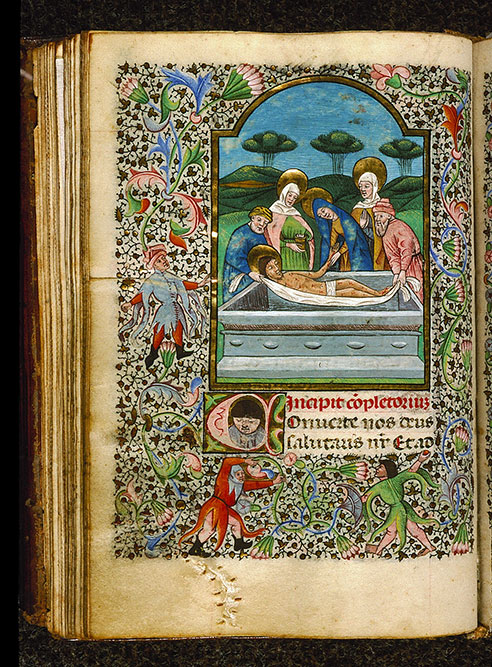 Incipit cōpletoriuʒ
Conuerte nos deus
salutaris nr̄ Et ad